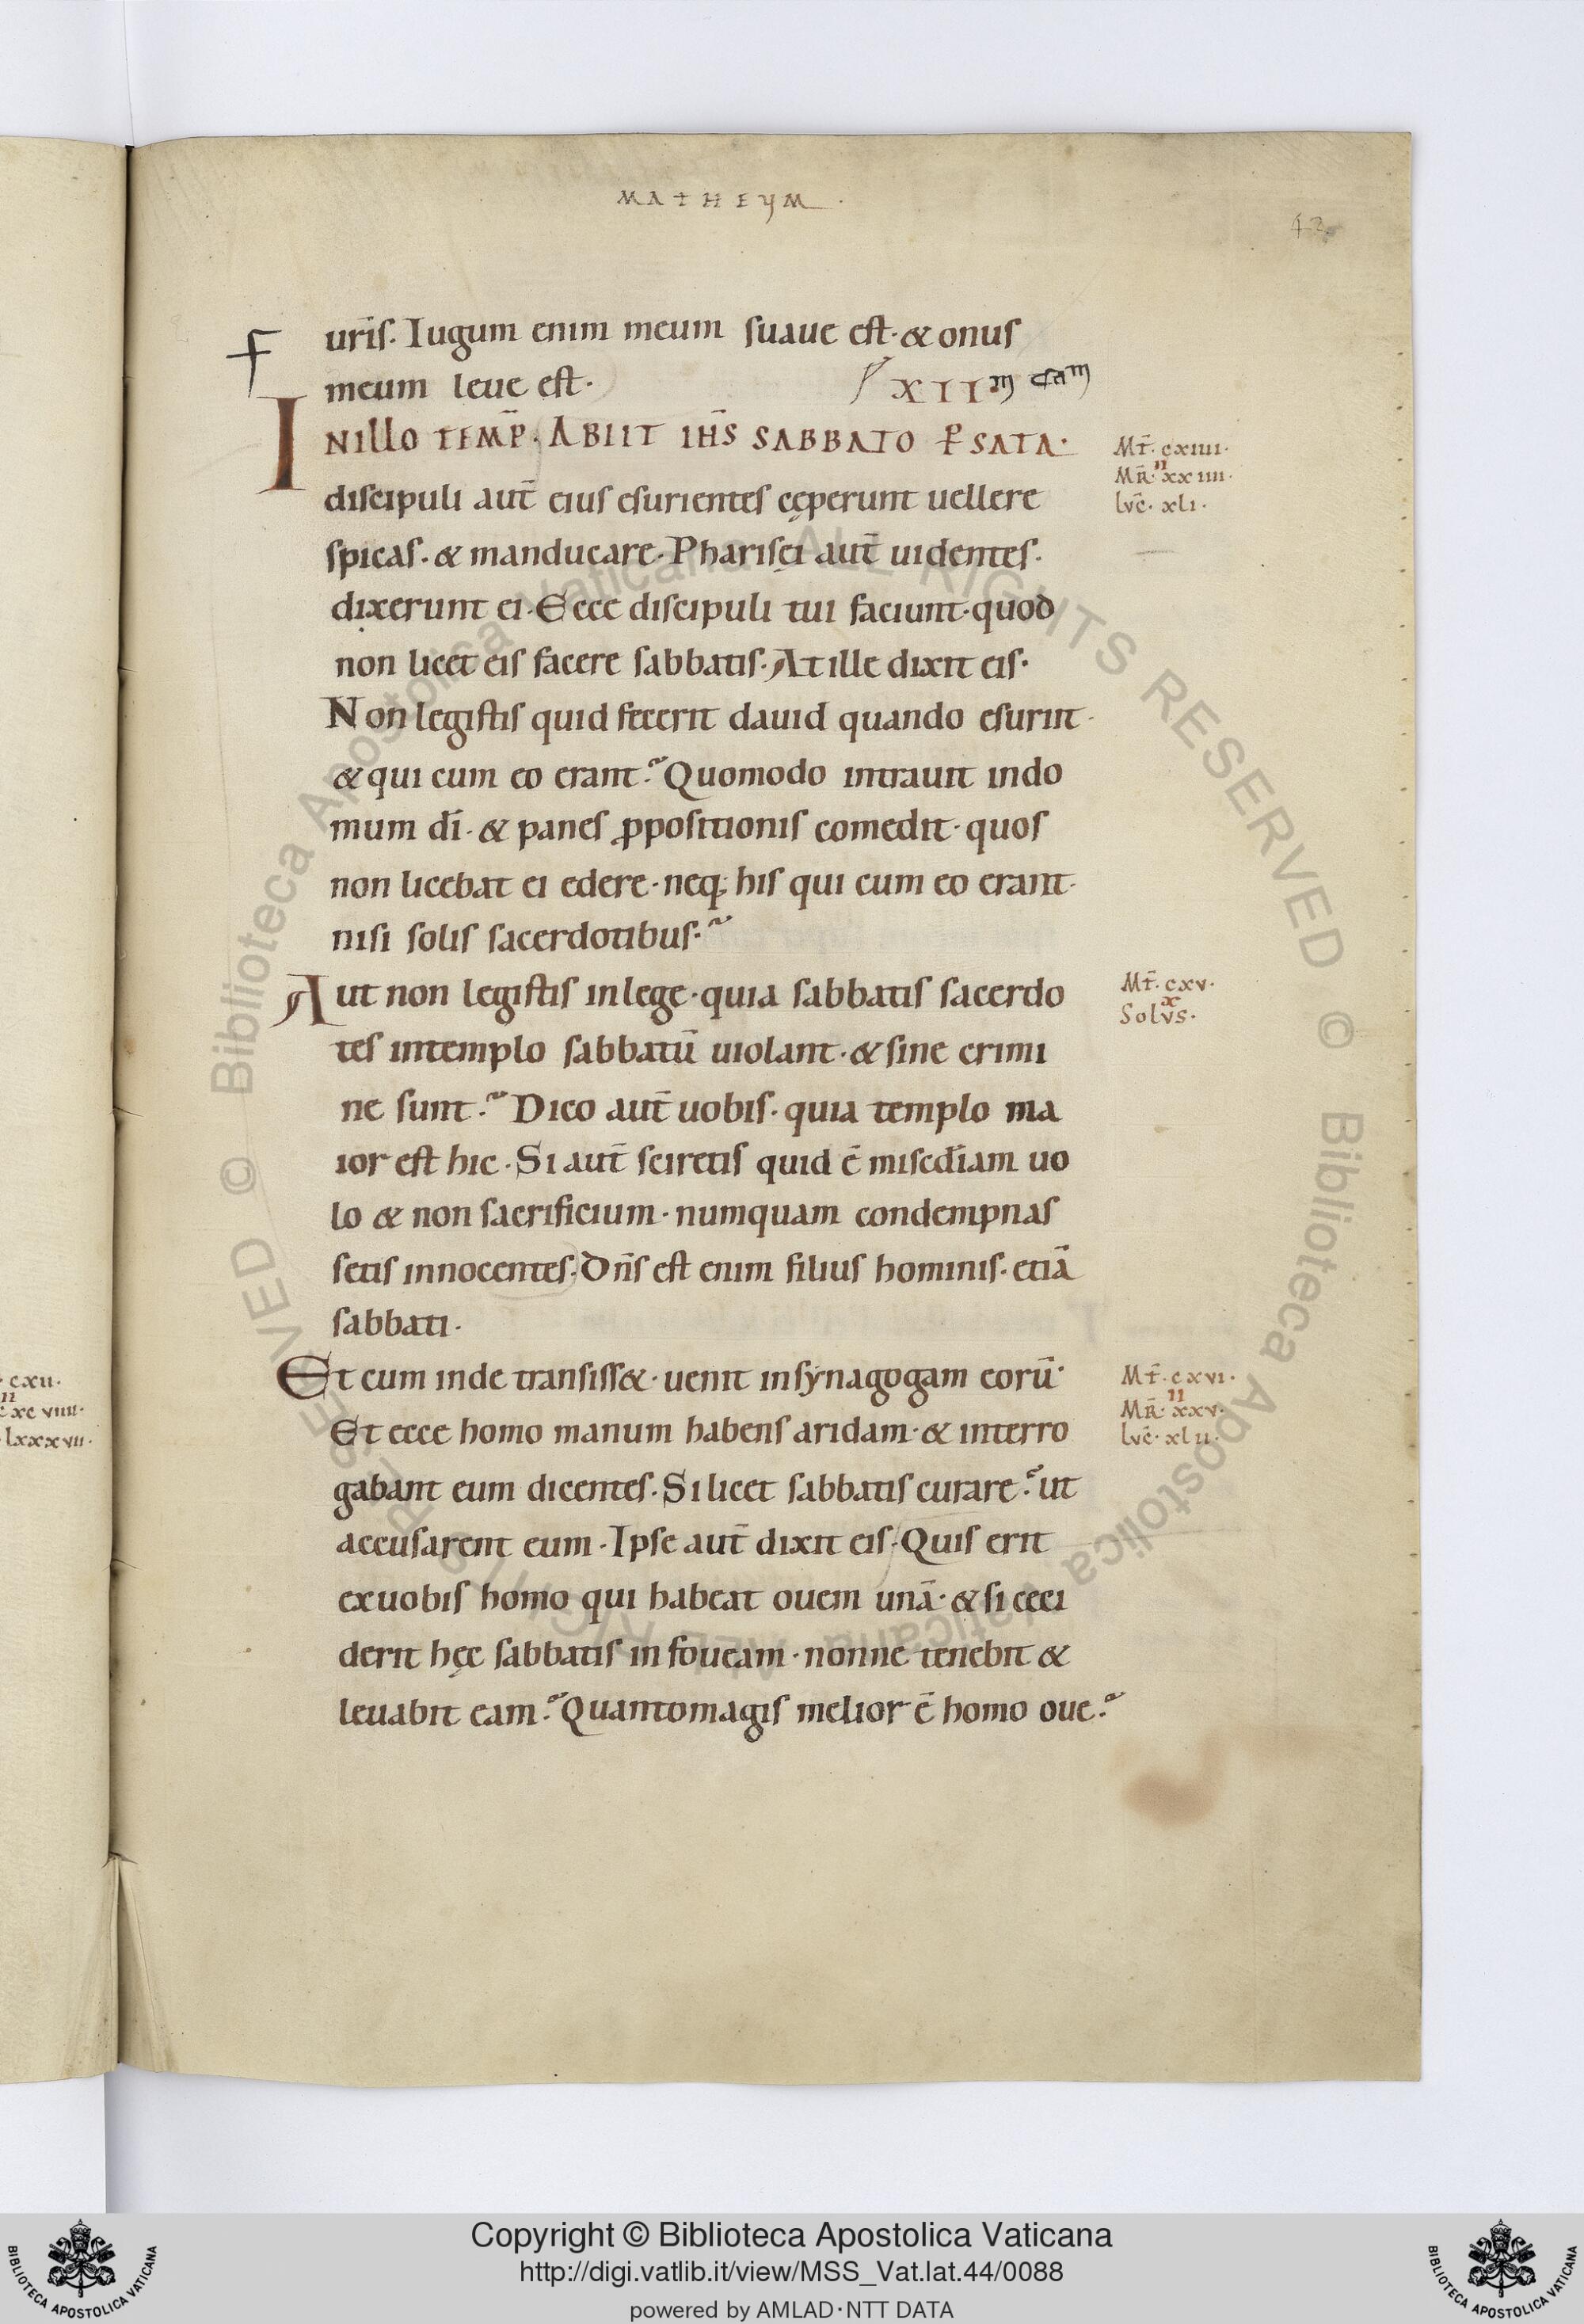 MATHEUM.
42
F
urīs. Iugum enim meum suaue est. & onus
meum leue est.
XIIm
INILLO TEMP̄. ABIIT IHS̄ SABBATO P̱ SATA.
discipuli aut̄ eius esurientes cęperunt uellere
spicas. & manducare. Pharisęi aut̄ uidentes.
dixerunt ei. Ecce discipuli tui faciunt. quod
non licet eis facere sabbatis. At ille dixit eis.
Non legistis quid fecerit dauid quando esuriit.
& qui cum eo erant? Quomodo intrauit indo
mum dī. & panes ꝓpositionis comedit. quos
non licebat ei edere. neq; his qui cum eo erant.
nisi solis sacerdotibus?
Aut non legistis inlege. quia sabbatis sacerdo
tes intemplo sabbatū uiolant. & sine crimi
ne sunt? Dico aut̄ uobis. quia templo ma
ior est hic. Si aut̄ sciretis quid ē misc̄diam uo
lo & non sacrificium. numquam condempnas
setis innocentes. Dn̄s est enim filius hominis. etiā
sabbati.
Et cum inde transiss&. uenit insynagogam eorū.
Et ecce homo manum habens aridam. & interro
gabant eum dicentes. Si licet sabbatis curare? ut
accusarent eum. Ipse aut̄ dixit eis. Quis erit
exuobis homo qui habeat ouem unā. & si ceci
derit hęc sabbatis in foueam. nonne tenebit &
leuabit eam? Quantomagis melior ē homo oue?
MT̄. cxiiii.
II
MR̄. xxiiii.
lvc̄. xli.
MT̄. cxv.
x
Solvs.
MT̄. cxvi.
II
MR̄. xxv.
lvc̄. xlii.
. cxii.
II
cxcviiii.
lxxxvii.
© Biblioteca Apostolica Vaticana ALL RIGHTS RESERVED © Biblioteca Apostolica Vaticana ALL RIGHTS RESERVED
Copyright © Biblioteca Apostolica Vaticana
http://digi.vatlib.it/view/MSS_Vat.lat.44/0088
powered by AMLAD·NTT DATA
BIBLIOTECA APOSTOLICA VATICANA
BIBLIOTECA APOSTOLICA VATICANA